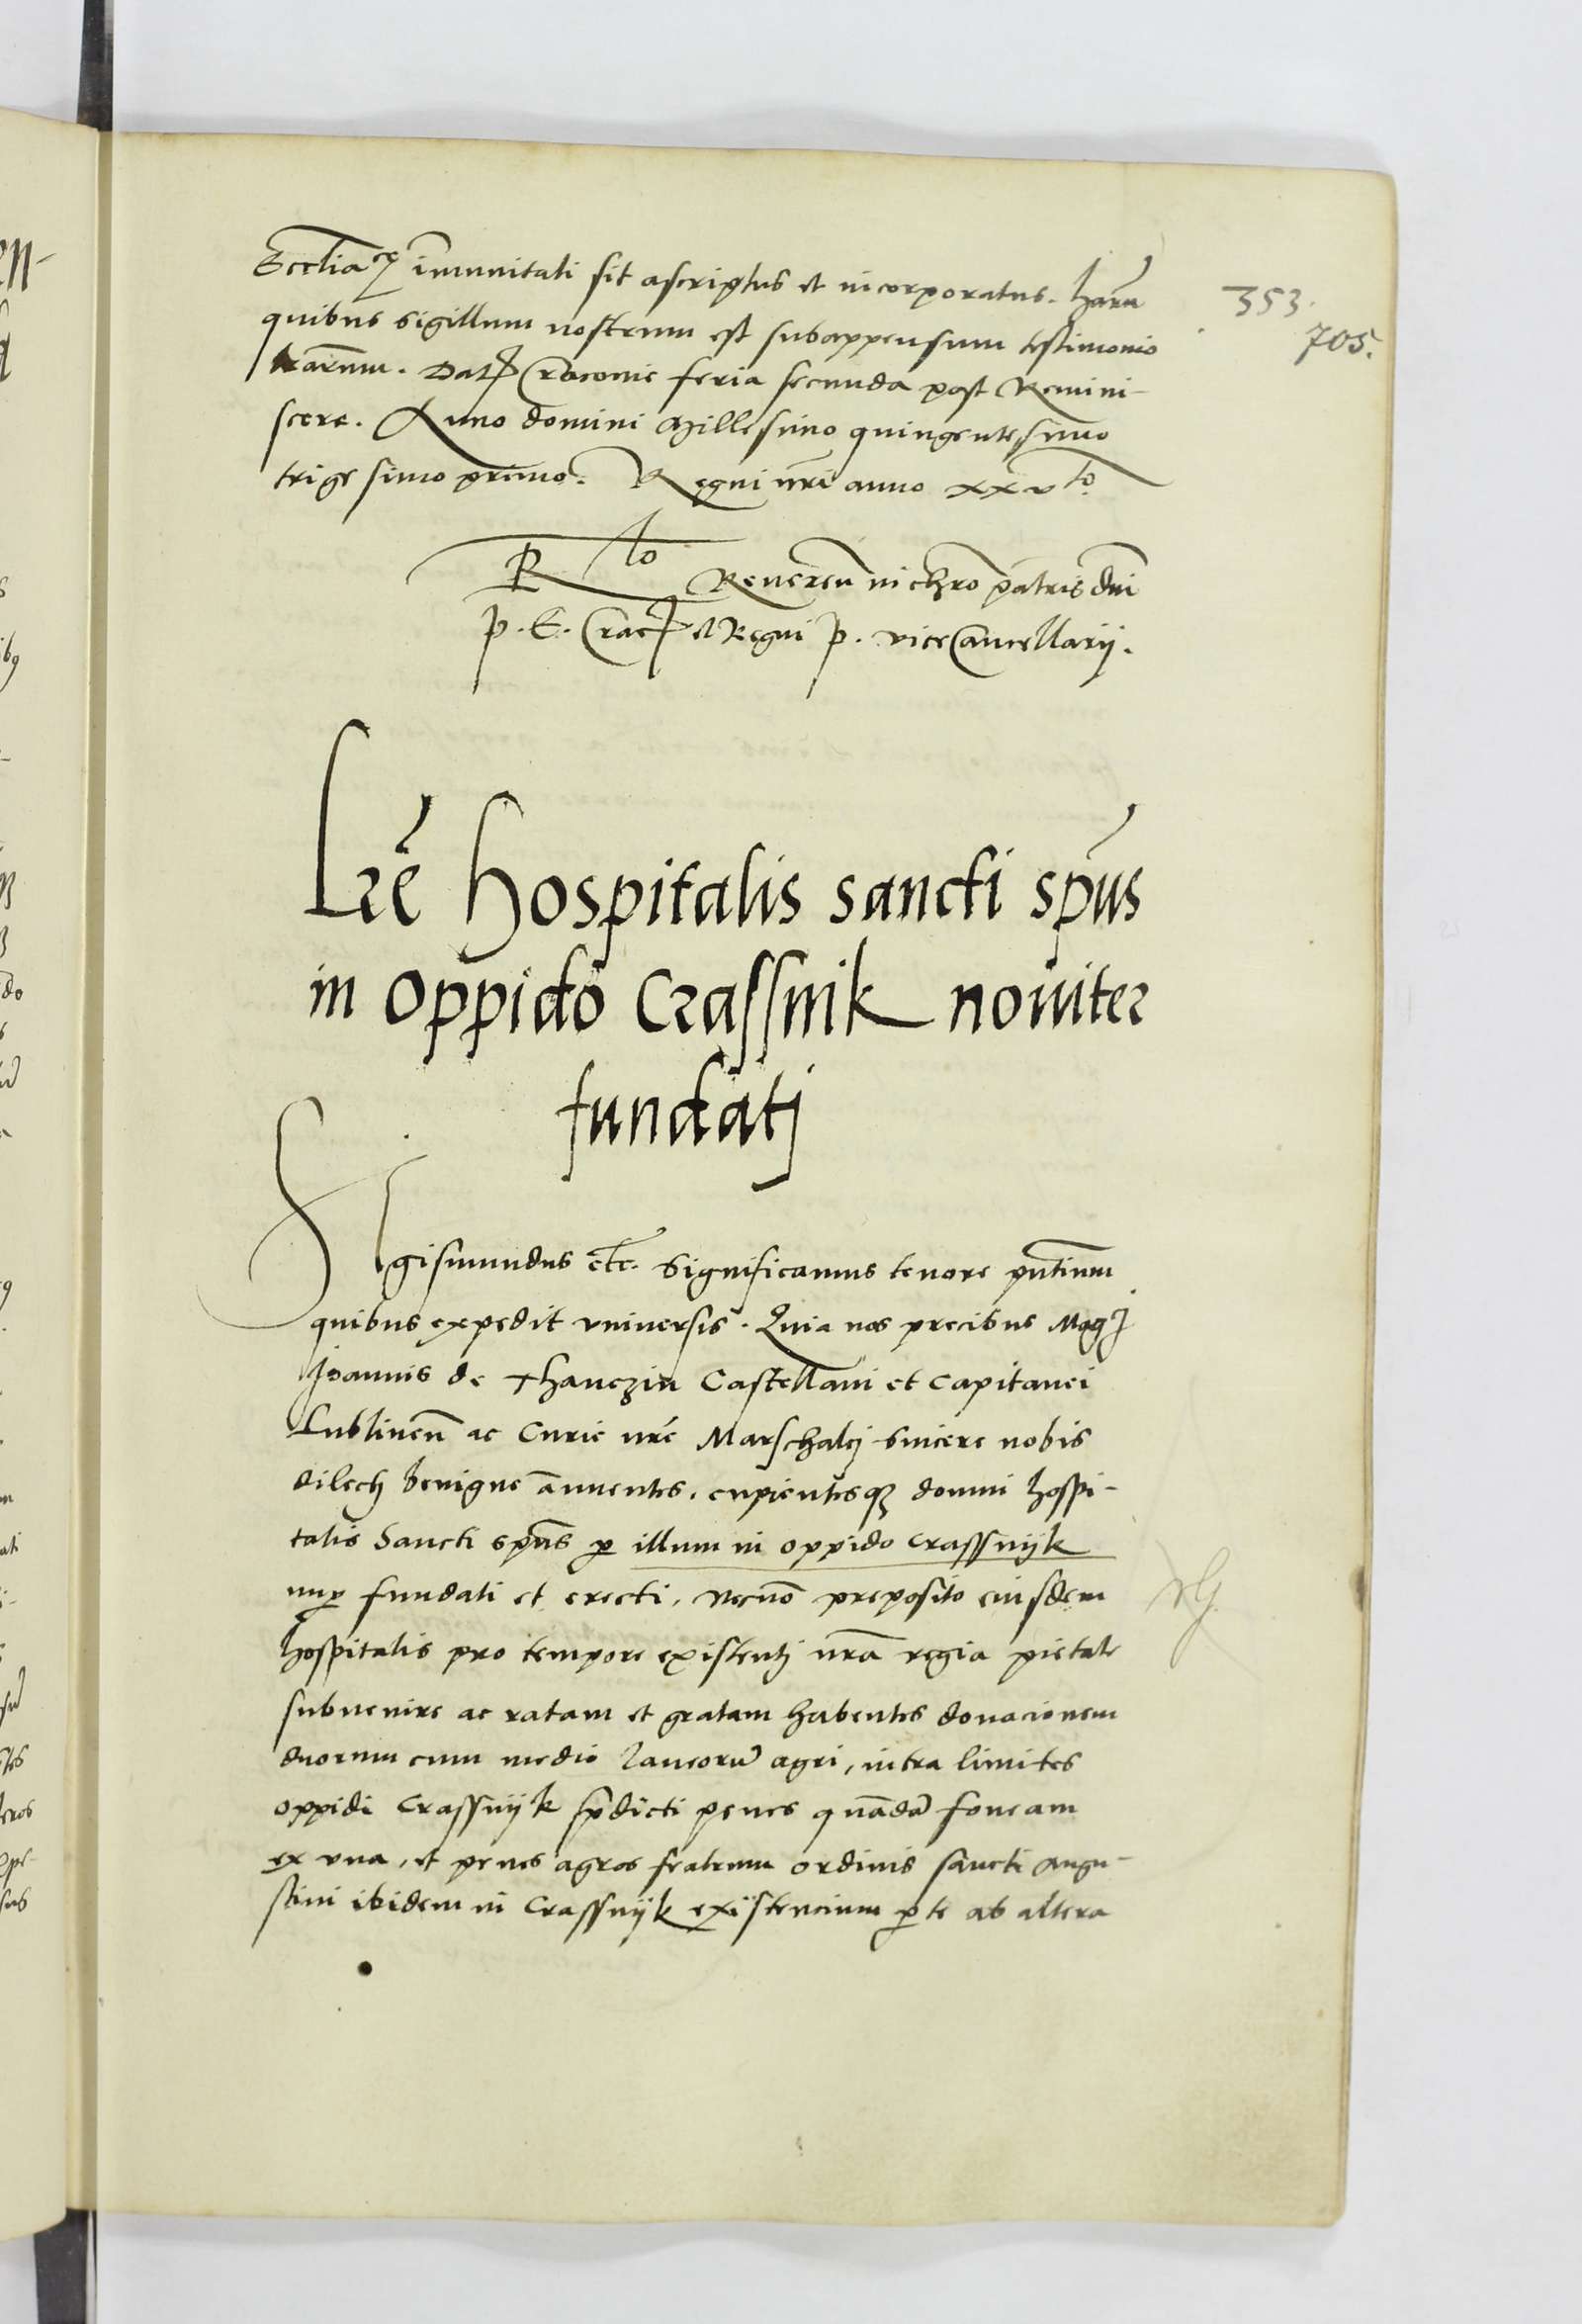 Eccliaꝝ im̄unitati sit ascriptus et incorporatus. harū
353.
quibus sigillum nostrum est subappensum testimonio
705.
lrārum. Datꝭ Cracovie feria secunda post Remini-
scere. Anno domini Millesimo quingentesimo
trigesimo primo. Regni nrī anno xxvto.
Rlo Reveren̄ in chrō patris dn̄i
p. E. Cracꝭ et Regni p. viceCancellarij.
Lrē hospitalis sancti spūs
in oppido Crassnik noviter
fundatj
SIgismundus etc. Significamus tenore pn̄tium
quibus expedit vniversis. Quia nos precibus Magci
Joannis de Thanczin Castellani et Capitanei
Lublinen̄ ac Curie nrē Marschalcj sincere nobis
dilecti benigne annuentes, cupientesqꝫ domui hospi-
talis Sancti spūs ꝑ illum in oppido Crassnijk
nuꝑ fundati et erecti, necnō preposito eiusdem
hospitalis pro tempore existentj nrā regia pietate
subuenire ac ratam et gratam habentes donacionem
duorum cum medio laneorū agri, intra limites
oppidi Crassnijk p̄dicti penes quādā foueam
ex vna, et penes agros fratrum ordinis sancti Augu-
stini ibidem in Crassnijk existencium ꝑte ab altera